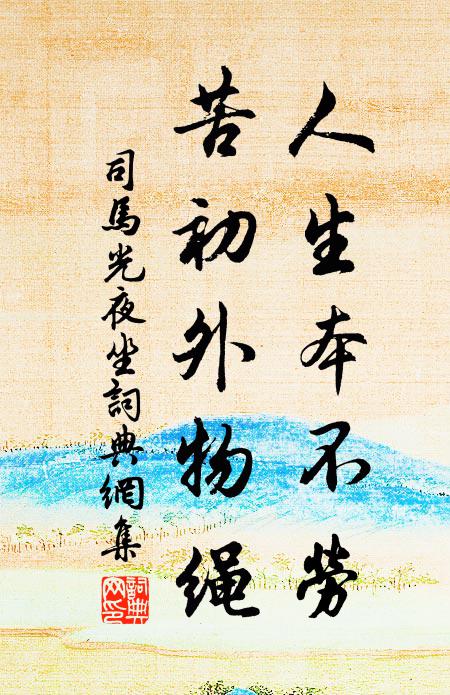 人生本不勞
苦初外物绳
司馬光夜坐詞典網集
詞典